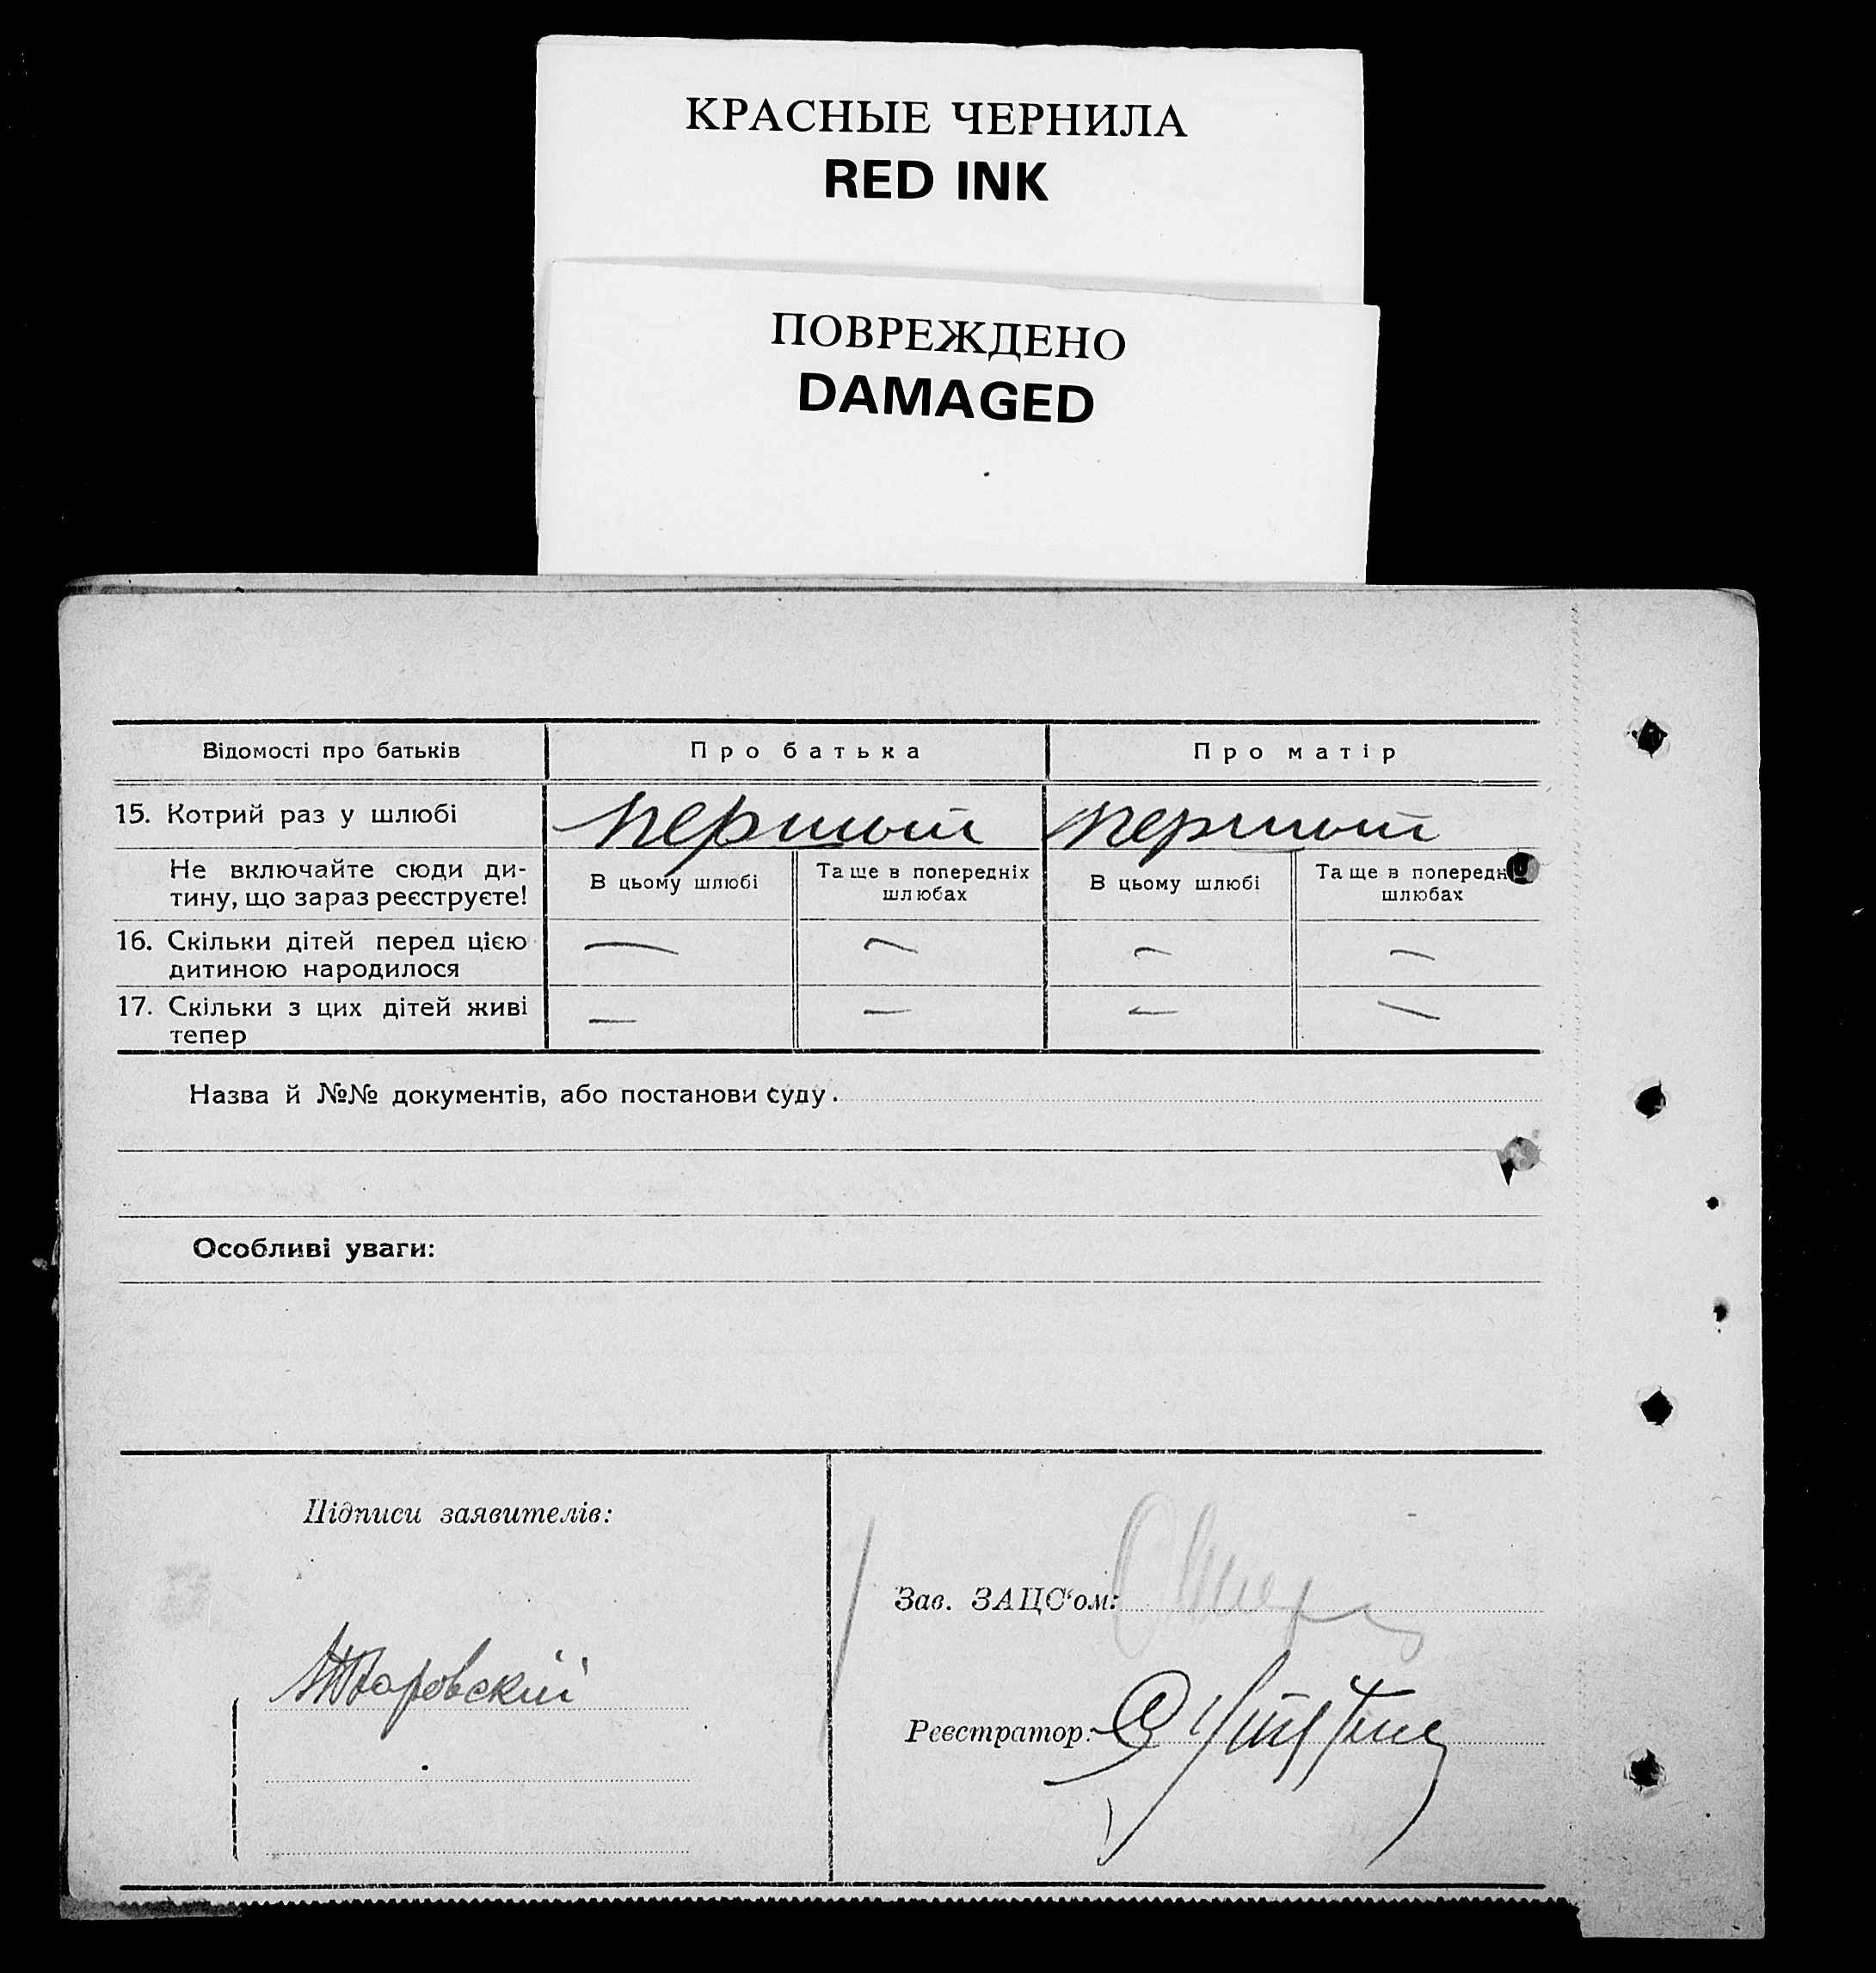 КРАСНЫЕ ЧЕРНИЛА
RED INK
ПОВРЕЖДЕНО
DAMAGED
Відомості про батьків Про батька Про матір
15. Котрий раз у шлюбі перший перший
Не включайте сюди ди-
тину, що зараз реєструєте!
В цьому шлюбі Та ще в попередніх
шлюбах
В цьому шлюбі Та ще в попередн
шлюбах
16. Скільки дітей перед цією — — — —
дитиною народилося
17. Скільки з цих дітей живі — — — —
тепер
Назва й №№ документів, або постанови суду.
Особливі уваги:
Підписи заявителів:
Зав. ЗАЦС'ом:
Реєстратор: